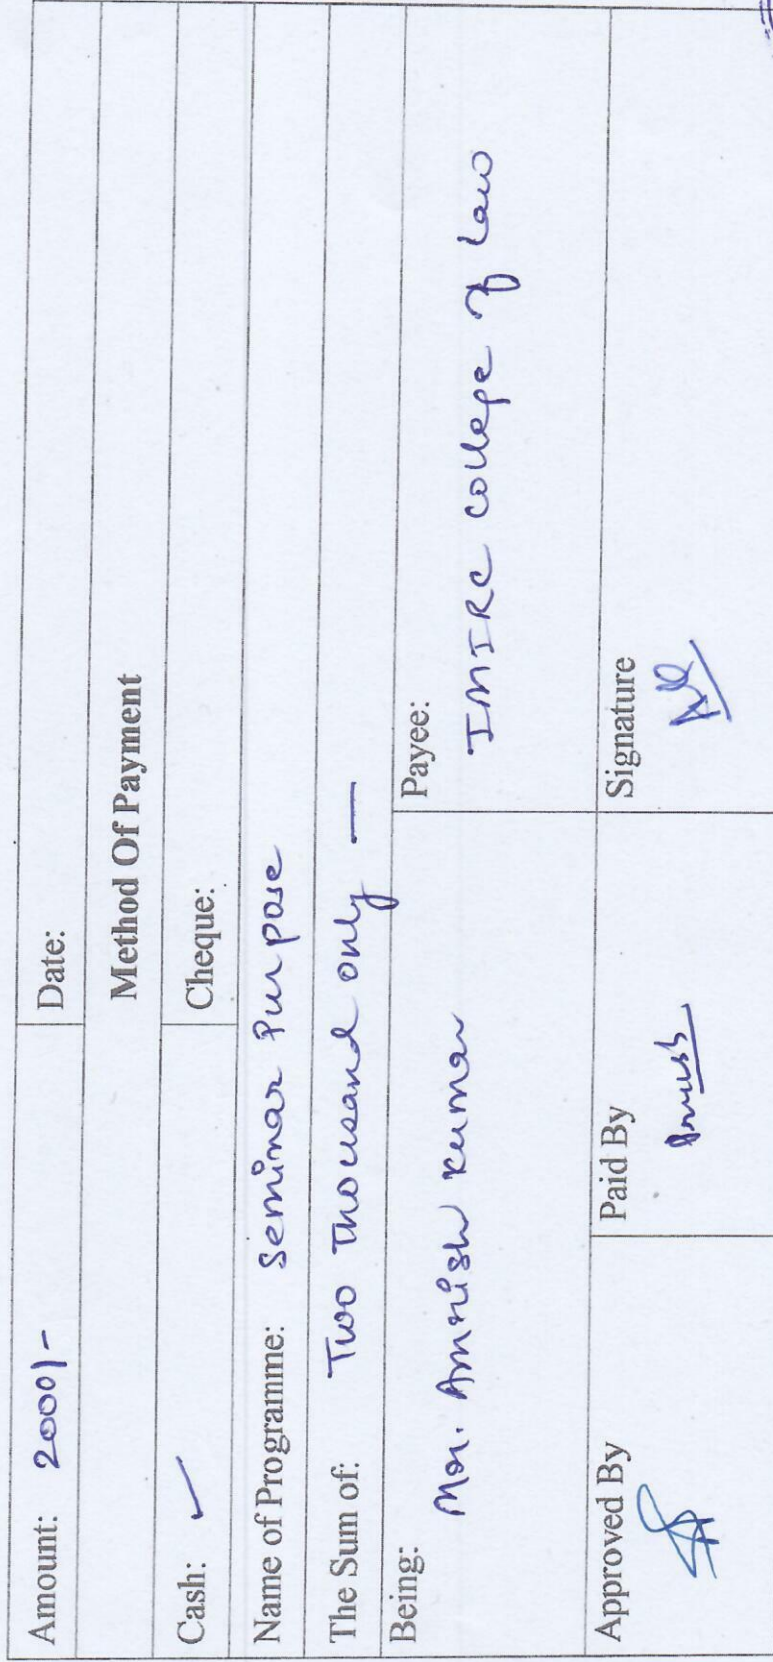 Amount: 2000/- Date:
Method Of Payment
Cash: ✓ Cheque:
Name of Programme: Seminar Purpose
The Sum of: Two Thousand only —
Being: Payee:
Mr. Amnish Kumar IMIRC College of Law
Approved By Paid By Signature